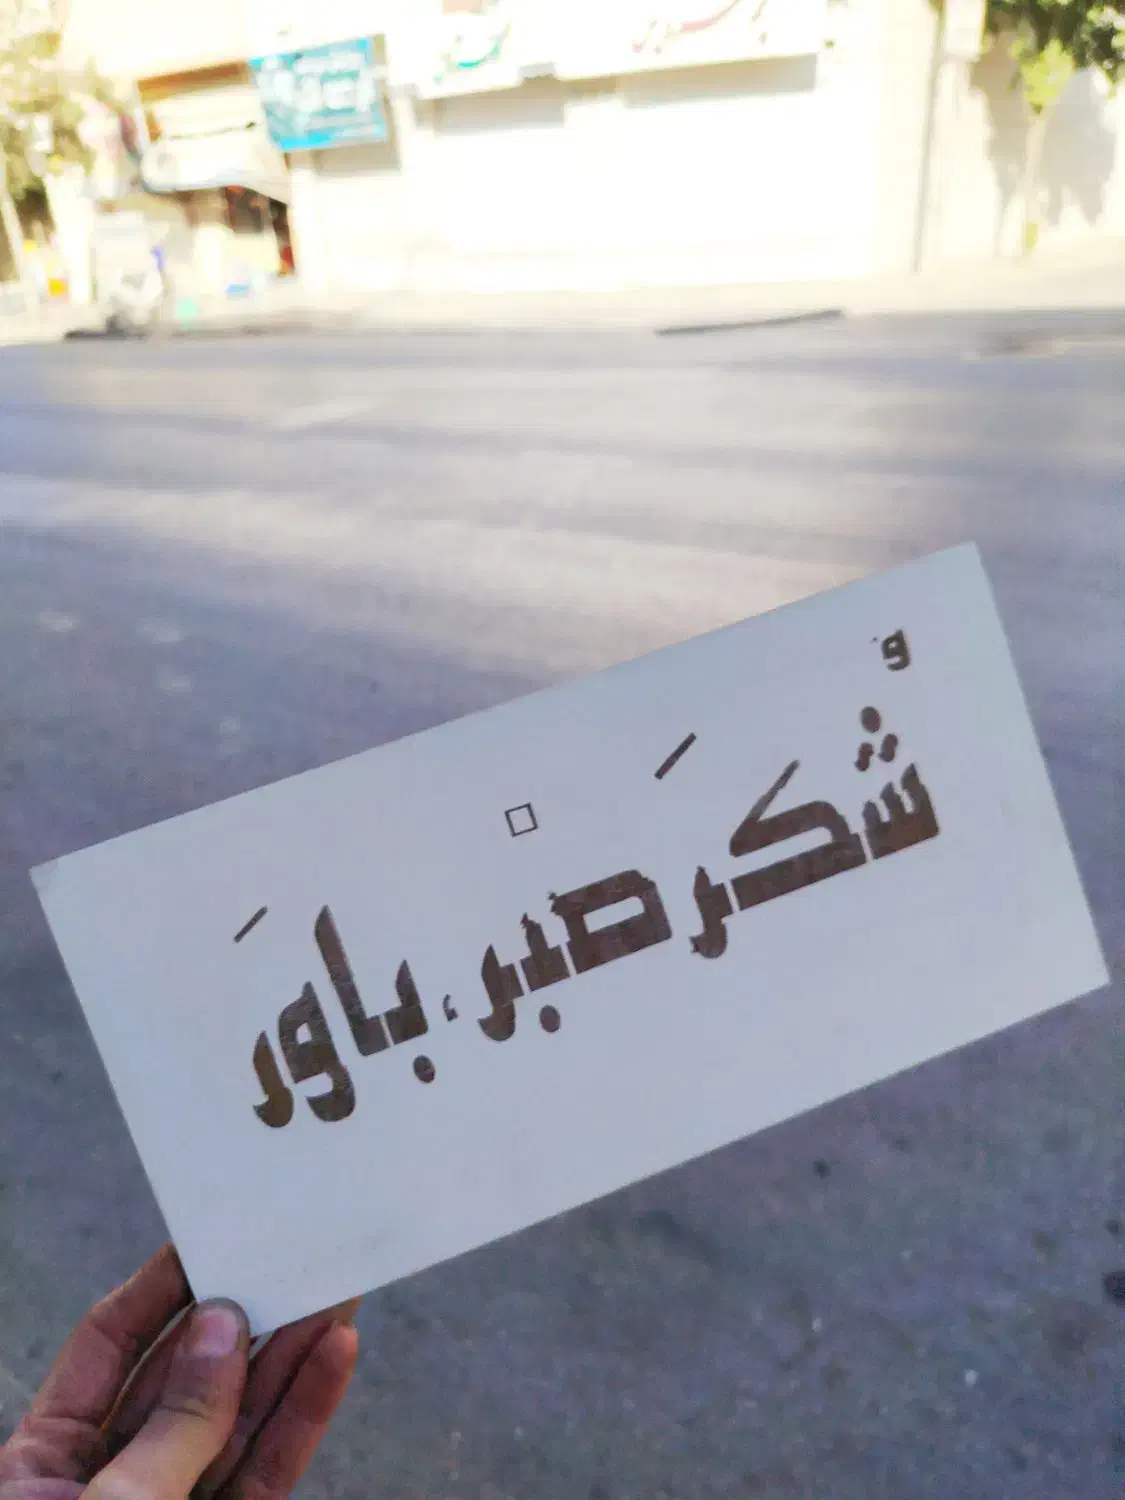 شُکر صَبْر، باوَر